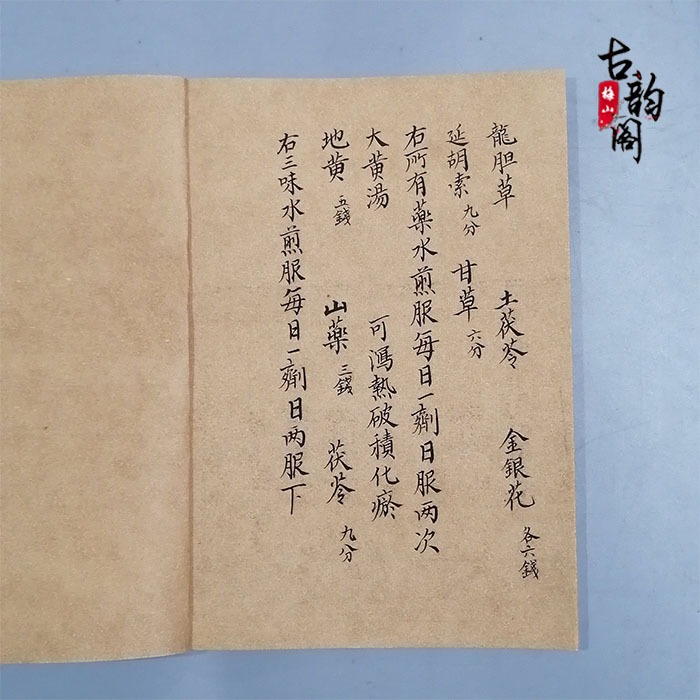 龍胆草 土茯苓 金銀花 各六錢
延胡索 九分 甘草 六分
右所有藥水煎服每日一劑日服两次
大黄湯 可瀉熱破積化瘀
地黄 五錢 山藥 三錢 茯苓 九分
右三味水煎服每日一劑日两服下
古韵阁
梅山